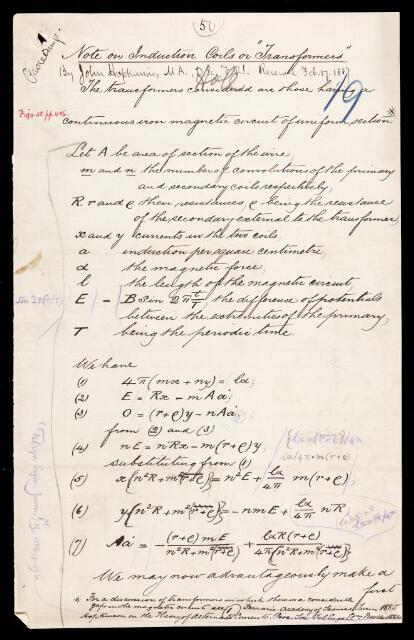 (50)
Note on Induction Coils or "Transformers"
By John Hopkinson, M.A., D.Sc. F.R.S. Received Feb. 17. 1887
The transformers considered are those having a
19
Figs. se pp. 4 & 6.
continuous iron magnetic circuit of uniform section*
Let A be area of section of the wire,
m and n the number of convolutions of the primary
and secondary coils respectively,
R, r and ρ their resistances, ρ being the resistance
of the secondary external to the transformer,
x and y currents in the two coils,
a induction per square centimetre,
α the magnetic force,
l the length of the magnetic circuit,
E = B Sin 2π t/T, the difference of potentials
sin 2π(t/T)
between the extremities of the primary,
T being the periodic time.
We have
(1) 4π(mx + ny) = lα;
(2) E = Rx − mAȧ;
(3) 0 = (r+ρ)y − nAȧ;
from (2) and (3)
(4) nE = nRx − m(r+ρ)y;
substituting from (1)
(5) x{n²R + m²(r+ρ)} = n²E + lα/4π m(r+ρ)
(6) y{n²R + m²(r+ρ)} = −nmE + lα/4π nR;
(7) Aȧ = − (r+ρ)mE / n²R + m²(r+ρ) + lαR(r+ρ) / 4π{n²R + m²(r+ρ)}
We may now advantageously make a
first
* For a discussion of transformers in which there is a considerable
gap in the magnetic circuit see Ferraris, Academy of Sciences Turin, 1885
Hopkinson on the Theory of Alternate Currents,